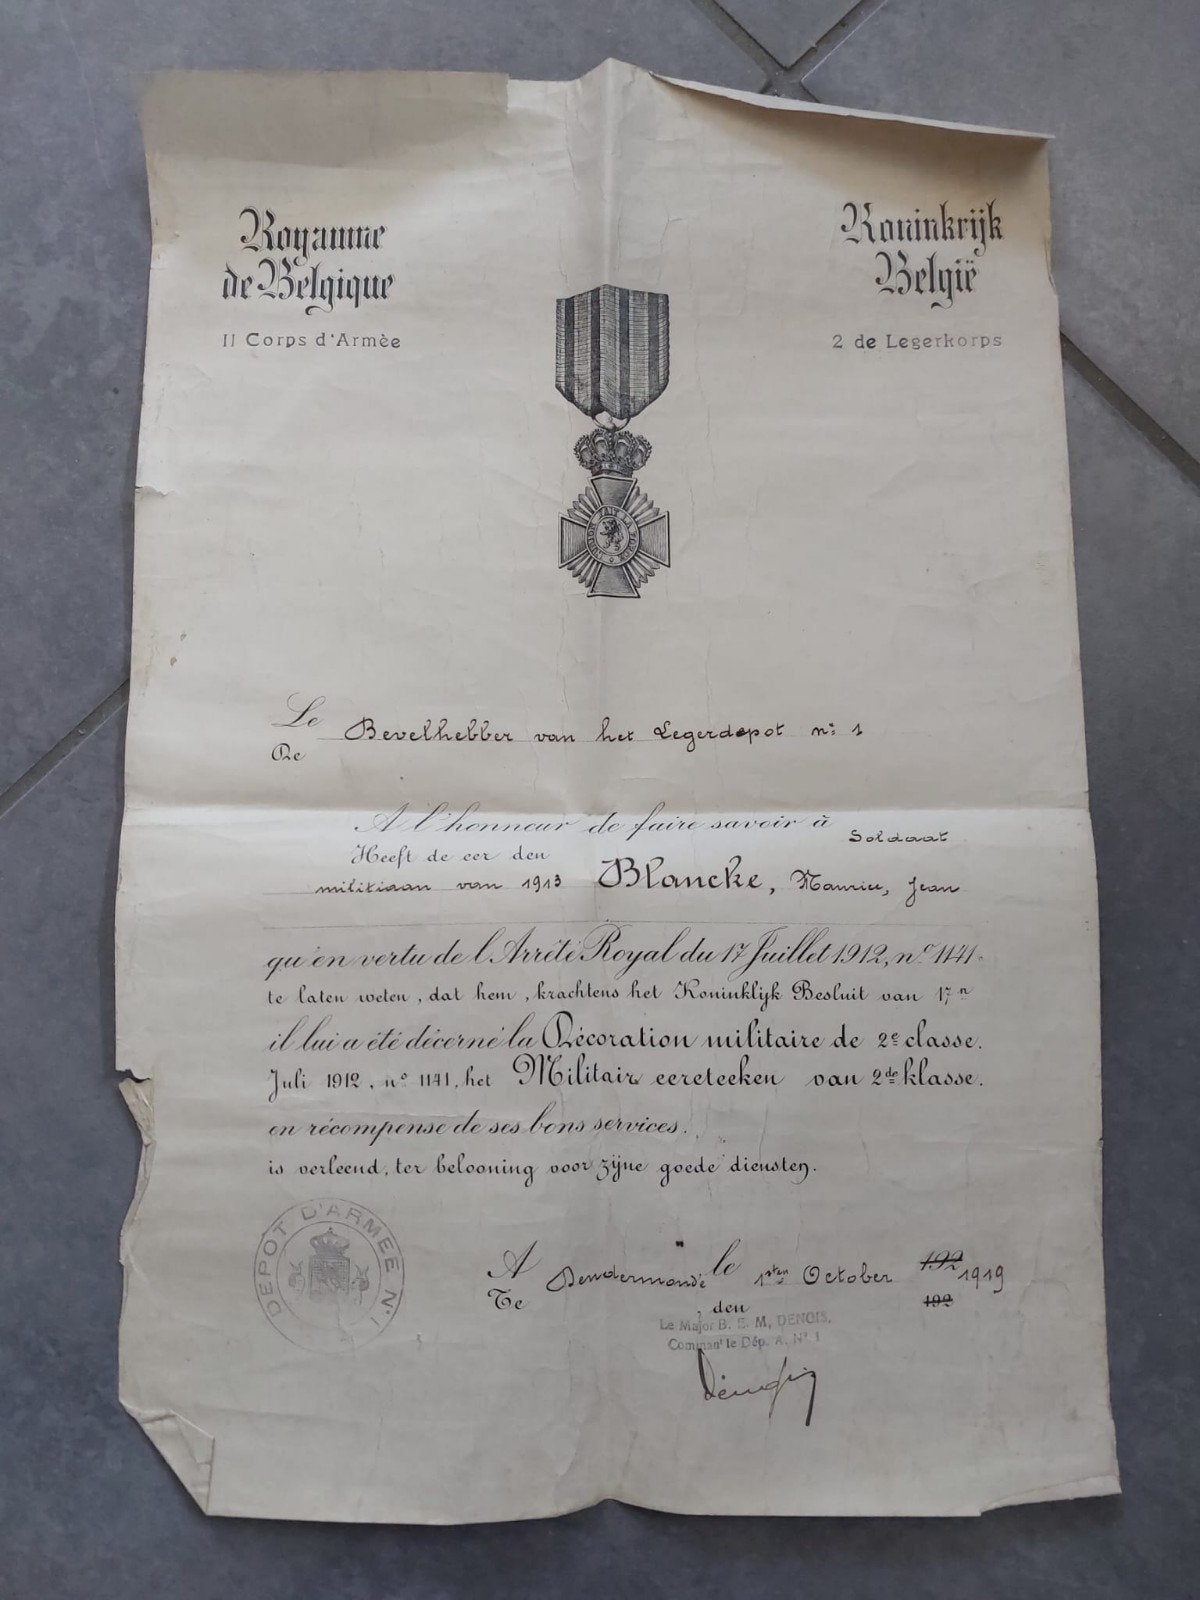 Royaume
de Belgique
II Corps d'Armèe
Koninkrijk
België
2 de Legerkorps
UNION FAIT LA FORCE
Le
De
Bevelhebber van het Legerdepot n: 1
A l'honneur de faire savoir à
Soldaat
Heeft de eer den
militiaan van 1913 Blancke, Maurice, Jean
qu'en vertu de l'Arrêté Royal du 17 Juillet 1912, nº 1141.
te laten weten, dat hem, krachtens het Koninklijk Besluit van 17n
il lui a été décerné la Décoration militaire de 2e classe.
Juli 1912, nº 1141, het Militair eereteeken van 2de klasse.
en récompense de ses bons services.
is verleend, ter belooning voor zijne goede diensten.
DEPOT D'ARMEE N°1
A
Te
Dendermonde le 1sten October 192 1919
den
192
Le Major B. E. M, DENOIS,
Commant le Dép. A. Nº 1